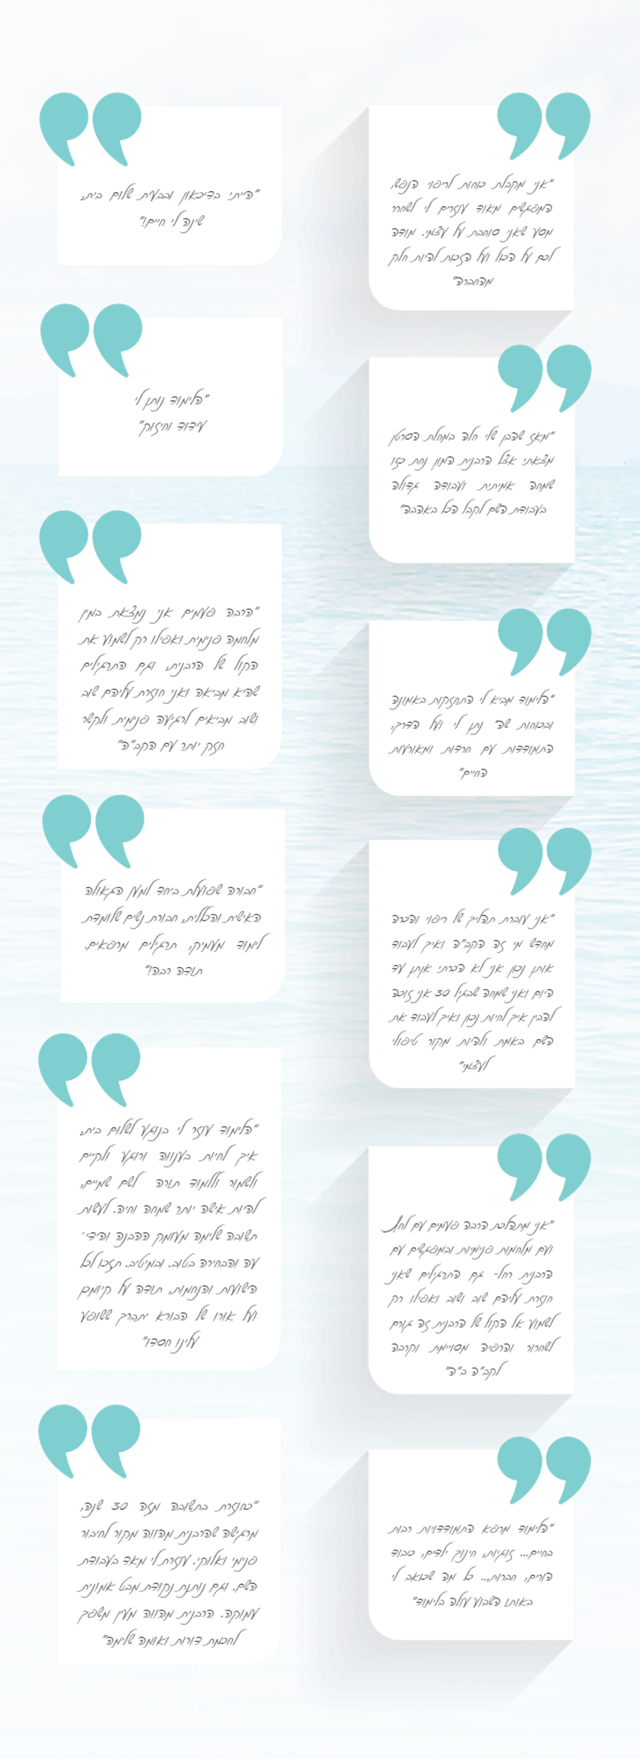 "אני מקבלת כוחות לריפוי הנפש,
המפגשים מאוד עוזרים לי לשחרר
מסע שאני סוחבת על עצמי. מודה
לכם על הכל ועל הזכות להיות חלק
מהחבורה"
"הייתי בדיכאון ובבעיות שלום בית,
שינה לי חיים!"
"מאז שהבן שלי חלה במחלת הסרטן
מצאתי אצל הרבנית המון נחת כזו
שמחה אמיתית ועבודה גדולה
בעבודת השם לקבל הכל באהבה"
"הלימוד נותן לי
עידוד וחיזוק"
"הלימוד מביא לי התחזקות באמונה
ובכוחות שה' נתן לי ועל הדרך,
התמודדות עם חרדות ומאורעות
החיים"
"הרבה פעמים אני נמצאת במין
מלחמה פנימית ואפילו רק לשמוע את
הקול של הרבנית, וגם התרגילים
שהיא מביאה ואני חוזרת עליהם שוב
ושוב מביאים לרגיעה פנימית ולקשר
חזק יותר עם הקב"ה"
"אני עוברת תהליך של ריפוי והכרה
מחדש מי זה הקב"ה ואיך לעבוד
אותו נכון אני לא הכרתי אותו עד
היום ואני שמחה שבגיל 30 אני זוכה
להבין איך לחיות נכון ואיך לעבוד את
השם באמת ולהיות מקור טיפולי
לעצמי"
"חבורה שפועלת ביחד למען הגאולה
האישית והכללית, חבורת נשים שלומדת
לימוד מעמיק, תרגילים מרפאים,
תודה רבה!"
"אני מתהלכת הרבה פעמים עם לחץ,
ועם מלחמות פנימיות ובמפגשים עם
הרבנית רחל- גם התרגילים שאני
חוזרת עליהם שוב ושוב ואפילו רק
לשמוע אל הקול של הרבנית זה גורם
לשחרור והרפיה מסויימת וקרבה
לקב"ה ב"ה"
"הלימוד עוזר לי בנוגע לשלום בית,
איך לחיות בענווה ורוגע ולקיים
ולשמור וללמוד תורה לשם שמיים,
להיות אשה יותר שמחה וחיה. לעשות
תשובה שלימה מעומק ההבנה והידי-
עה והבחירה בטוב, ובמיטיב. תזכו לכל
הישועות והנחמות, תודה על קיומכם
ועל אורו של הבורא יתברך ששופע
עלינו חסדו"
"הלימוד מרפא התמודדויות רבות
בחיים... זוגיות, חינוך ילדים, כבוד
הורים, חברות... כל מה שכואב לי
באותו השבוע עולה בלימוד"
"כחוזרת בתשובה מזה 30 שנה,
מרגישה שהרבנית מהווה מקור לחיבור
פנימי ואלוקי. עוזרת לי מאד בעבודת
השם, וגם נותנת נקודת מבט אמונית
עמוקה. הרבנית מהווה מעין משפך
לחכמת דורות ואומה שלימה"